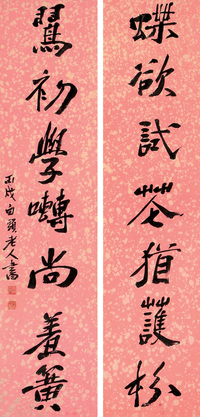 蝶欲試花猶護粉
鸎初學囀尚羞簧
丙戌白頭老人書